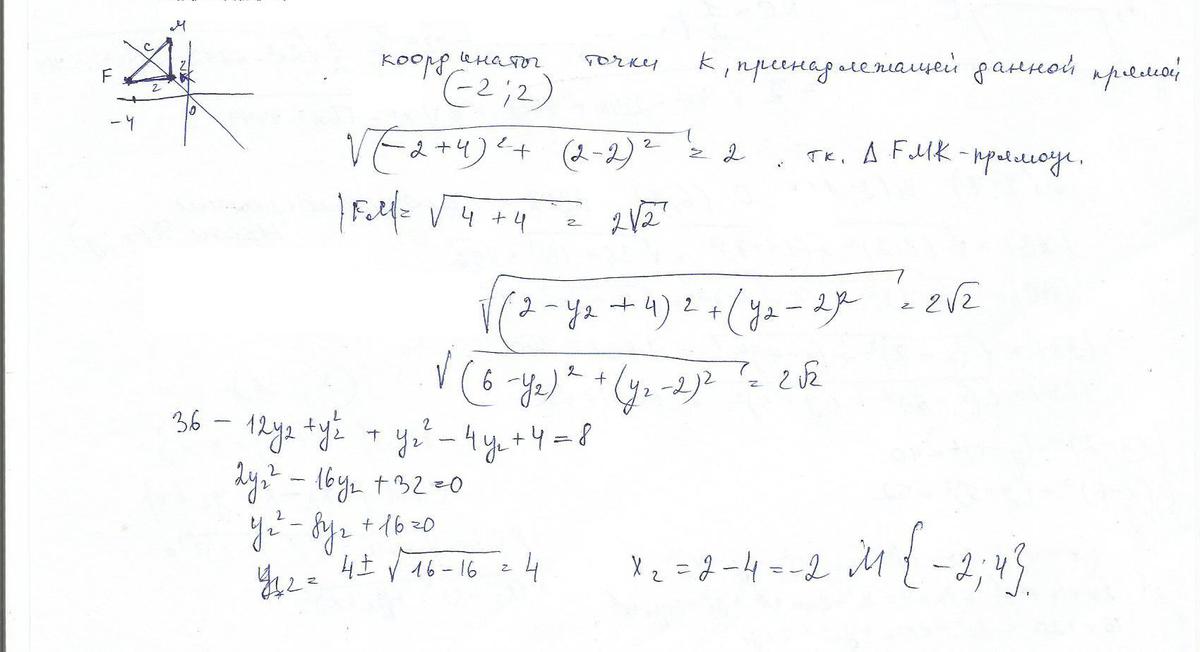 M
C
F
2
2
K
-4
0
координаты точки K, принадлежащей данной прямой
(-2; 2)
√((-2+4)² + (2-2)²) = 2 . т.к. Δ FMK-прямоуг.
|FM| = √(4+4) = 2√2
√((2-y₂+4)² + (y₂-2)²) = 2√2
√((6-y₂)² + (y₂-2)²) = 2√2
36 - 12y₂ + y₂² + y₂² - 4y₂ + 4 = 8
2y₂² - 16y₂ + 32 = 0
y₂² - 8y₂ + 16 = 0
y₁,₂ = 4 ± √(16-16) = 4
x₂ = 2-4 = -2 M {-2; 4}.